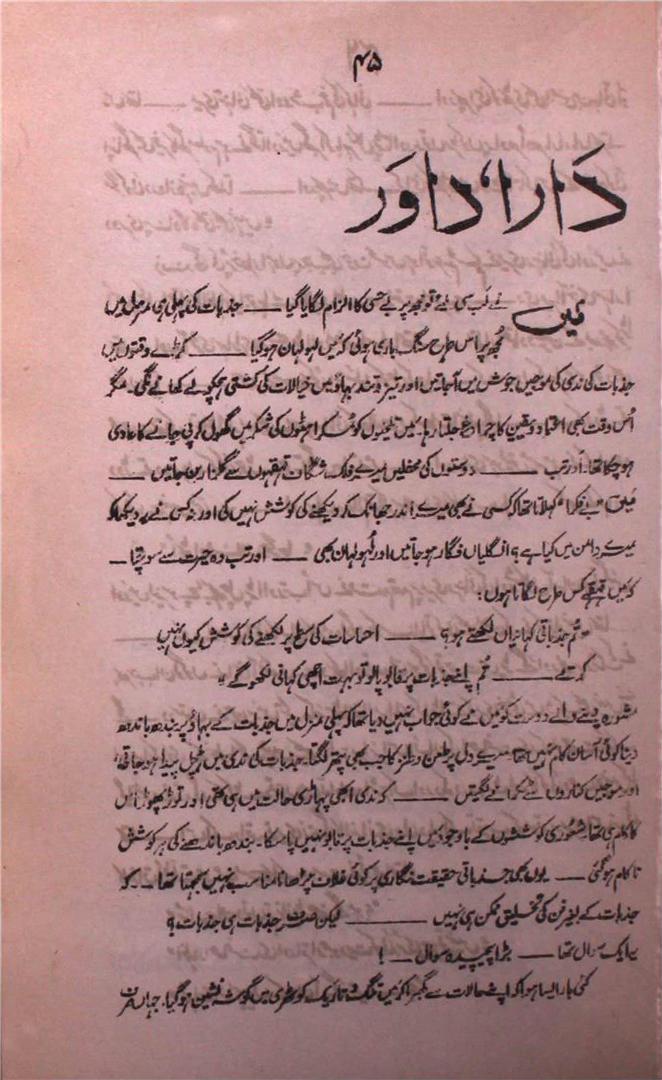 ۴۵
دَارا، داوَر
میں نے لب سی لئے تو مجھ پر بے حسی کا الزام لگایا گیا ـــــ جذبات کی پہلی ہی مرحلے میں
مجھ پر اس طرح سنگ باری ہوئی کہ میں لہولہان ہو گیا ـــــ کڑے وقتوں میں
جذبات کی ندی کی موجیں جوش میں آجاتیں اور تیز و تند بہاؤ میں خیالات کی کشتی ہچکولے کھانے لگی۔ مگر
اُس وقت بھی اعتماد و یقین کا چراغ جلتا رہا۔ میں تلخیوں کو مسکراہٹوں کی شکر میں گھول کر پی جانے کا عادی
ہو چکا تھا۔ اور تب ـــــ دوستوں کی محفلیں میرے فلک شگاف قہقہوں سے گلزار بن جاتیں ـــــ
میں "بے فکرا" کہلاتا تھا کسی نے بھی میرے اندر جھانک کر دیکھنے کی کوشش نہیں کی اور نہ کسی نے یہ دیکھا کہ
میرے دامن میں کیا ہے؟ انگلیاں فگار ہو جاتیں اور لہولہان بھی ـــــ اور تب وہ حیرت سے سوچتا ـــــ
کہ میں قہقہے کس طرح لگاتا ہوں؛
"تم جذباتی کہانیاں لکھتے ہو؟ ـــــ احساسات کی سطح پر لکھنے کی کوشش کیوں نہیں
کرتے ـــــ تم اپنے جذبات پر قابو پالو تو بہت اچھی کہانی لکھو گے"
مشورہ دینے والے دوست کو میں نے کوئی جواب نہیں دیا تھا کہ پہلی منزل میں جذبات کے بہاؤ پر بندھ باندھ
دینا کوئی آسان کام نہیں تھا۔ میرے دل پر طعن و طنز کا جب بھی پتھر لگتا۔ جذبات کی ندی میں ہلچل پیدا ہو جاتی،
اور موجیں کناروں سے ٹکرانے لگتیں ـــــ کہ ندی ابھی پہاڑی حالت میں ہی تھی اور توڑ پھوڑ اس
کا کام ہی تھا۔ شعوری کوششوں کے باوجود میں اپنے جذبات پر قابو نہیں پا سکا۔ بندھ باندھنے کی ہر کوشش
ناکام ہو گئی ـــــ یوں بھی جذباتی حقیقت نگاری پر کوئی غلاف چڑھانا مناسب نہیں سمجھتا تھا ـــ کہ
جذبات کے بغیر فن کی تخلیق ممکن ہی نہیں ـــــ لیکن صرف جذبات ہی جذبات؟
یہ ایک سوال تھا ـــــ بڑا پیچیدہ سوال ـــ!
کئی بار ایسا ہوا کہ اپنے حالات سے گھبرا کر میں تنگ و تاریک کوٹھری میں گوشہ نشین ہو گیا۔ جہاں صرف